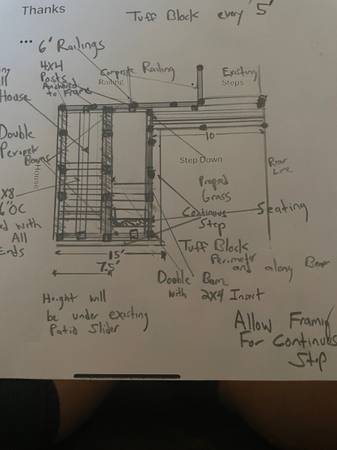 Thanks
Tuff Block every 5'
...
6' Railings
4x4
Posts
Anchored
to Frame
Composite Railing
Railing
Existing
Steps
House
Double
Beams
10
Step Down
Rear
Line
Proposed
Grass
X8
6"OC
with
All
Ends
Continuous
Step
Seating
15'
7.5'
Tuff Block
Perimeter
and along Beam
Double Beam
with 2X4 Insert
Height will
be under existing
Patio Slider
Allow Framing
For Continuous
Step